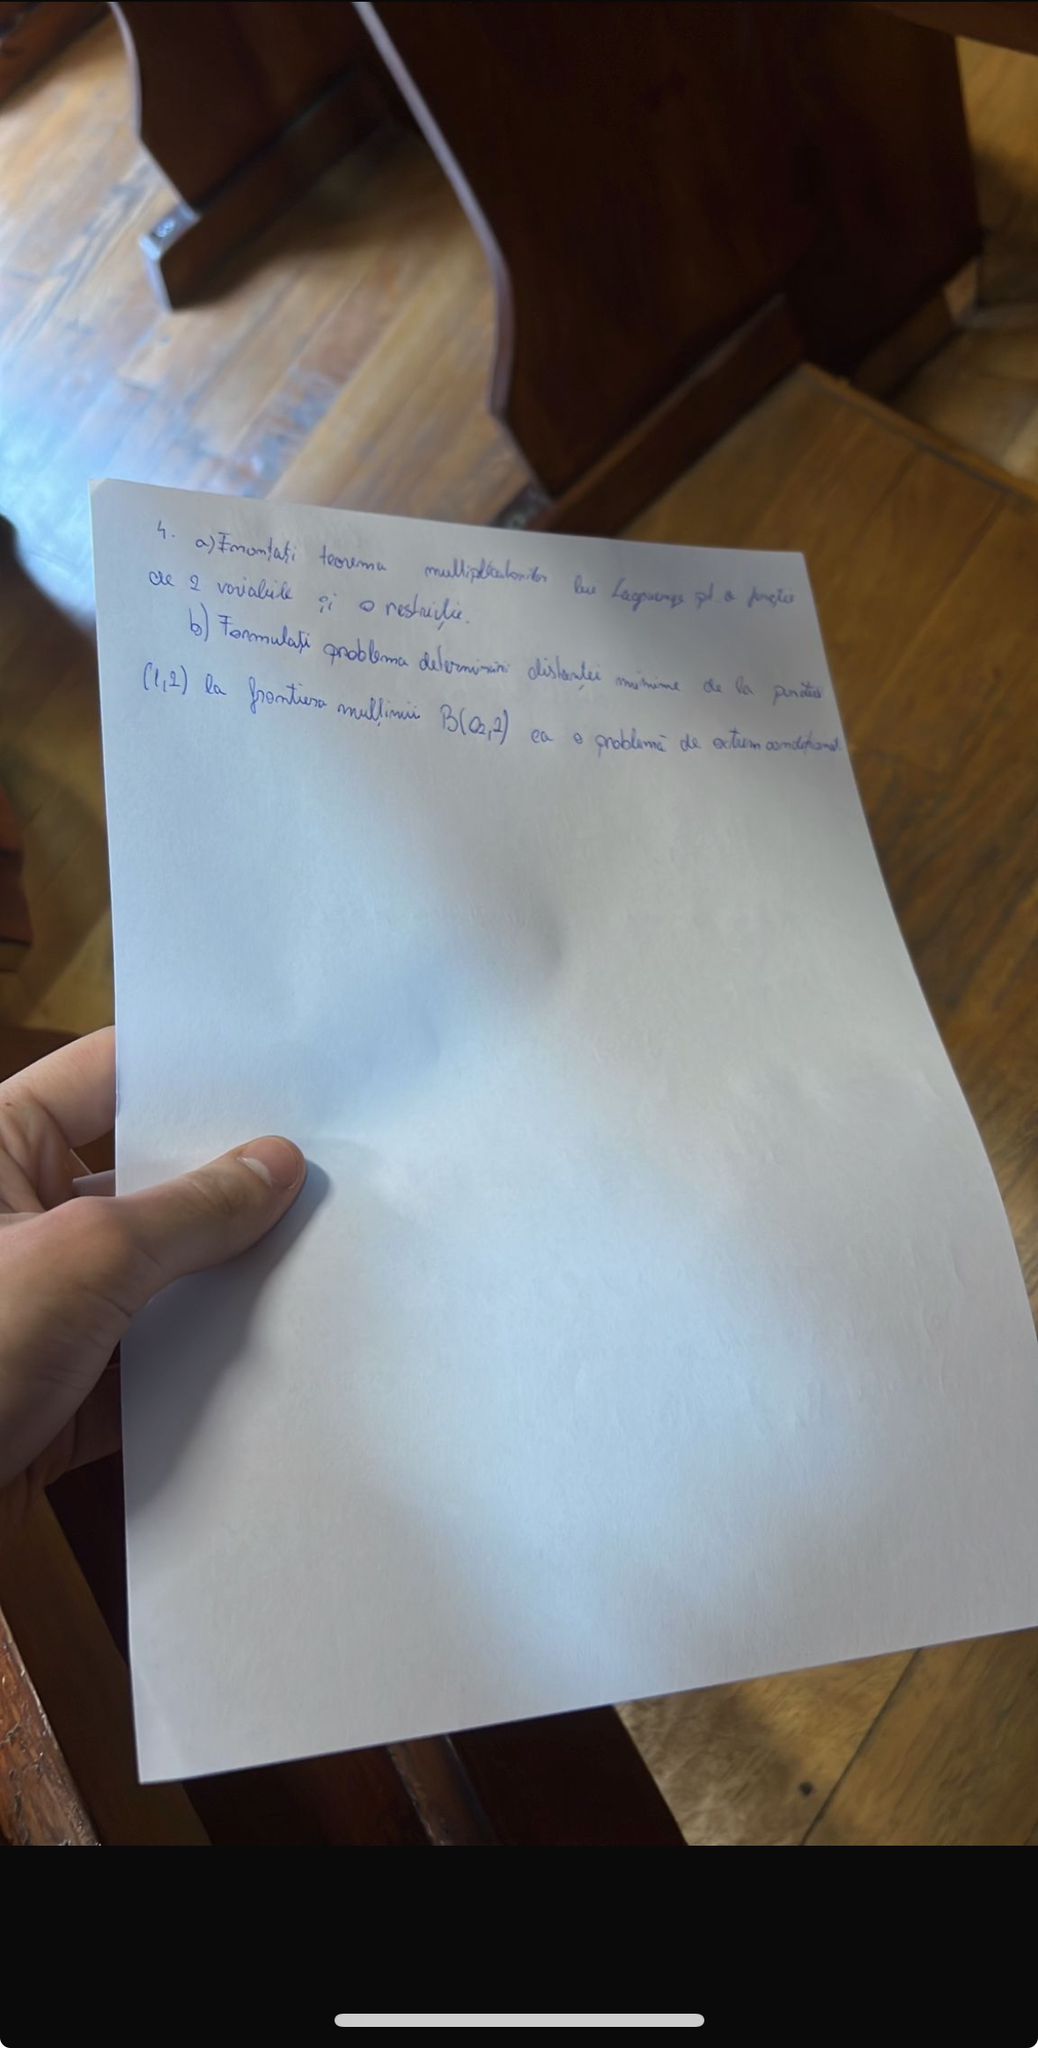 4. a) Enunțați teorema multiplicatorilor lui Lagrange pt o funcție
de 2 variabile și o restricție.
b) Formulați problema determinării distanței minime de la punctul
(1,2) la frontiera mulțimii B(0₂,2) ca o problemă de extrem condiționat.